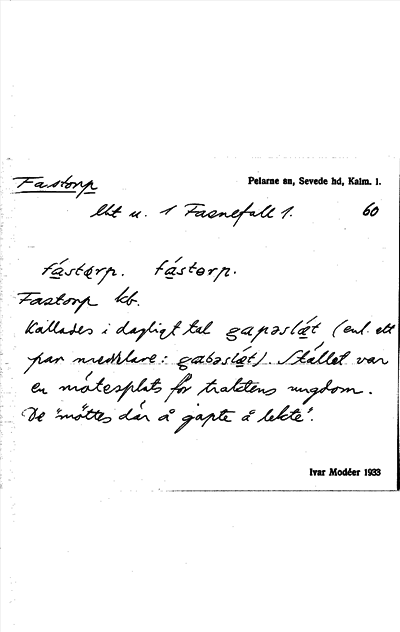 Fastorp
Pelarne sn, Sevede hd, Kalm. l.
lht u. 1 Fasnefall 1. 60
fástərp. fástərp.
Fastorp kb.
Kallades i dagligt tal gapəslæt (enl. ett
par meddelare: gabəslæt). Stället var
en mötesplats för traktens ungdom.
De "möttes där å gapte å lekte".
Ivar Modéer 1933